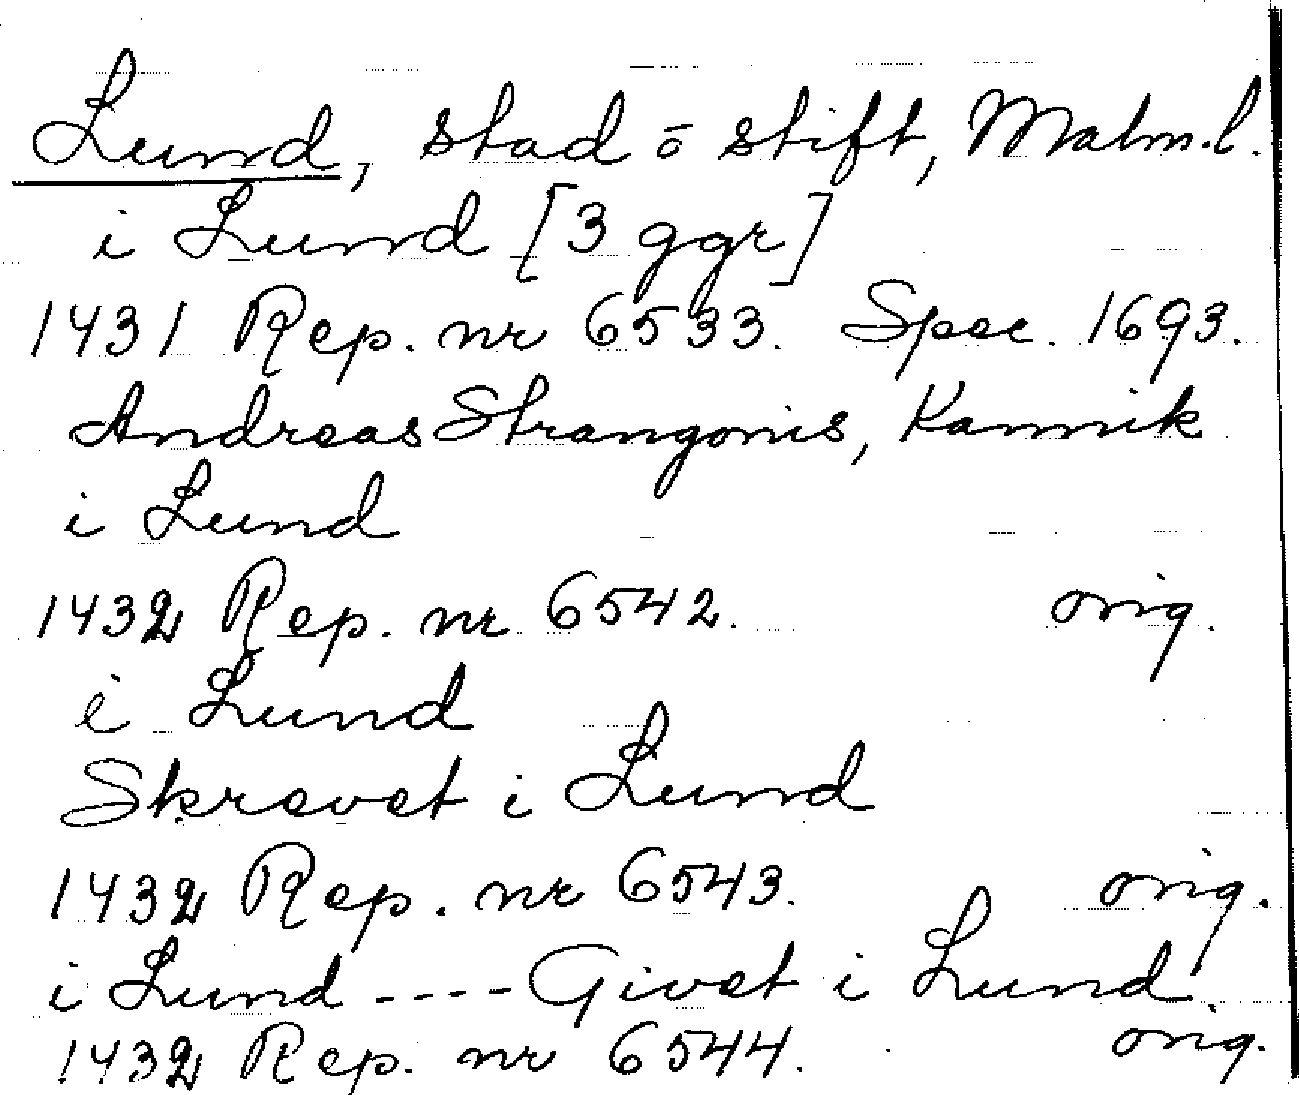 Lund, stad ō stift, Malm.l.
i Lund [3 ggr]
1431 Rep. nr 6533. Spec. 1693.
Andreas Strangonis, Kannik
i Lund
1432 Rep. nr 6542. orig.
i Lund
Skrevet i Lund
1432 Rep. nr 6543. orig.
i Lund ---- Givet i Lund.
1432 Rep. nr 6544. orig.